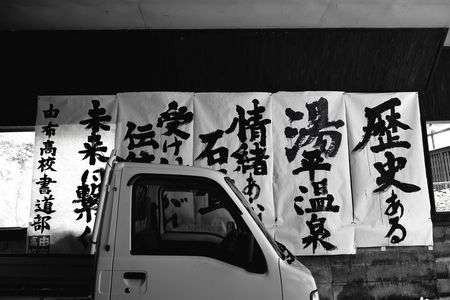 歴史ある
湯平温泉
情緒あ
石
受け
伝
未来に繋
由布高校書道部